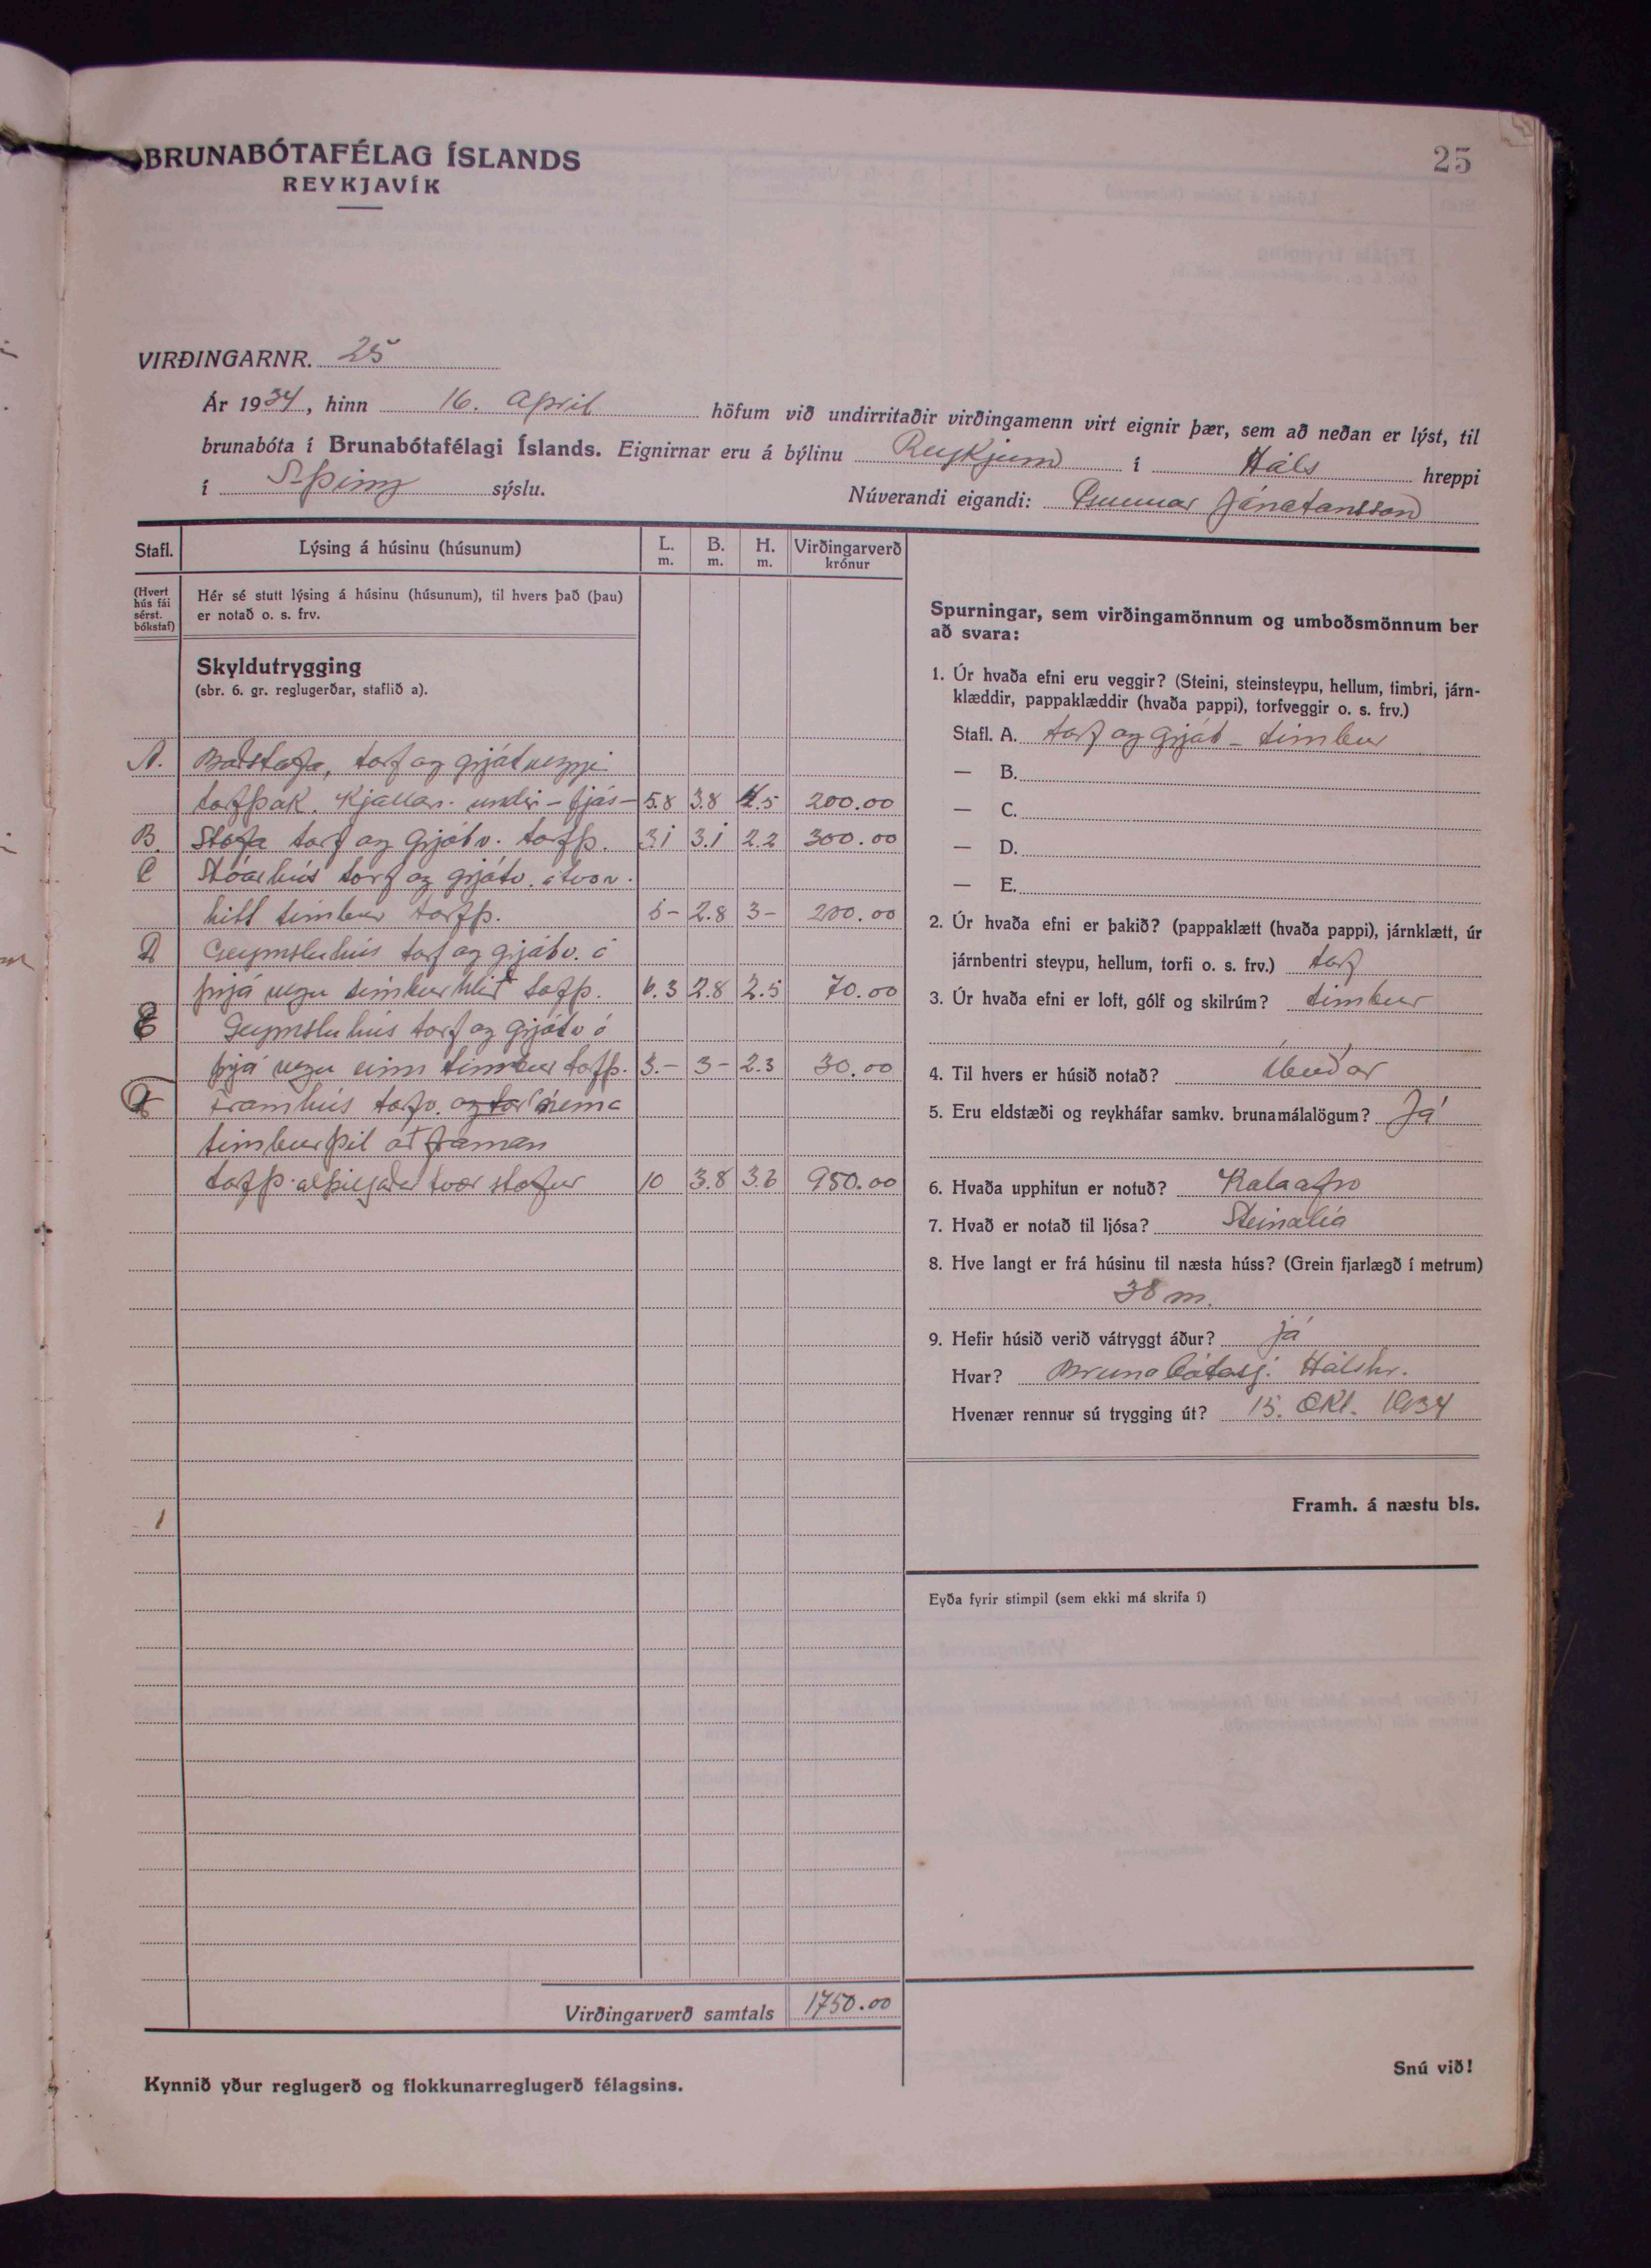 BRUNABÓTAFÉLAG ÍSLANDS
REYKJAVÍK
25
VIRÐINGARNR. 25
Ár 1934, hinn 16. apríl höfum við undirritaðir virðingamenn virt eignir þær, sem að neðan er lýst, til
brunabóta í Brunabótafélagi Íslands. Eignirnar eru á býlinu Reykjum í Háls hreppi
í S-Þing sýslu. Núverandi eigandi: Gunnar Jónatansson
Stafl. Lýsing á húsinu (húsunum) L. m. B. m. H. m. Virðingarverð krónur
(Hvert hús fái sérst. bókstaf)
Hér sé stutt lýsing á húsinu (húsunum), til hvers það (þau)
er notað o. s. frv.
Skyldutrygging
(sbr. 6. gr. reglugerðar, staflið a).
A. Baðstofa, torf og grjótveggi
torfþak. Kjallari undir - fjós - 5.8 3.8 4.5 200.00
B. Stofa torf og grjótv. torfþ. 3.1 3.1 2.2 300.00
C Stóarhús torf og grjótv. á tvo v.
hitt timbur torfþ. 5- 2.8 3- 200.00
D Geymsluhús torf og grjótv. á
þrjá vegu timburhlið torfþ. 6.3 2.8 2.5 70.00
E Geymsluhús torf og grjótv á
þrjá vegu einn timbur torfþ. 3.- 3- 2.3 30.00
F Framhús torfv. og tor nema
timburþil að framan
torfþ. alþiljaðar tvær stofur 10 3.8 3.6 950.00
1
Virðingarverð samtals 1750.00
Kynnið yður reglugerð og flokkunarreglugerð félagsins.
Spurningar, sem virðingamönnum og umboðsmönnum ber
að svara:
1. Úr hvaða efni eru veggir? (Steini, steinsteypu, hellum, timbri, járn-
klæddir, pappaklæddir (hvaða pappi), torfveggir o. s. frv.)
Stafl. A. torf og grjót - timbur
— B.
— C.
— D.
— E.
2. Úr hvaða efni er þakið? (pappaklætt (hvaða pappi), járnklætt, úr
járnbentri steypu, hellum, torfi o. s. frv.) torf
3. Úr hvaða efni er loft, gólf og skilrúm? timbur
4. Til hvers er húsið notað? Íbúðar
5. Eru eldstæði og reykháfar samkv. brunamálalögum? Já
6. Hvaða upphitun er notuð? Kolaofn
7. Hvað er notað til ljósa? Steinolía
8. Hve langt er frá húsinu til næsta húss? (Grein fjarlægð í metrum)
38 m.
9. Hefir húsið verið vátryggt áður? já
Hvar? Brunabótasj. Hálshr.
Hvenær rennur sú trygging út? 15. Okt. 1934
Framh. á næstu bls.
Eyða fyrir stimpil (sem ekki má skrifa í)
Snú við!